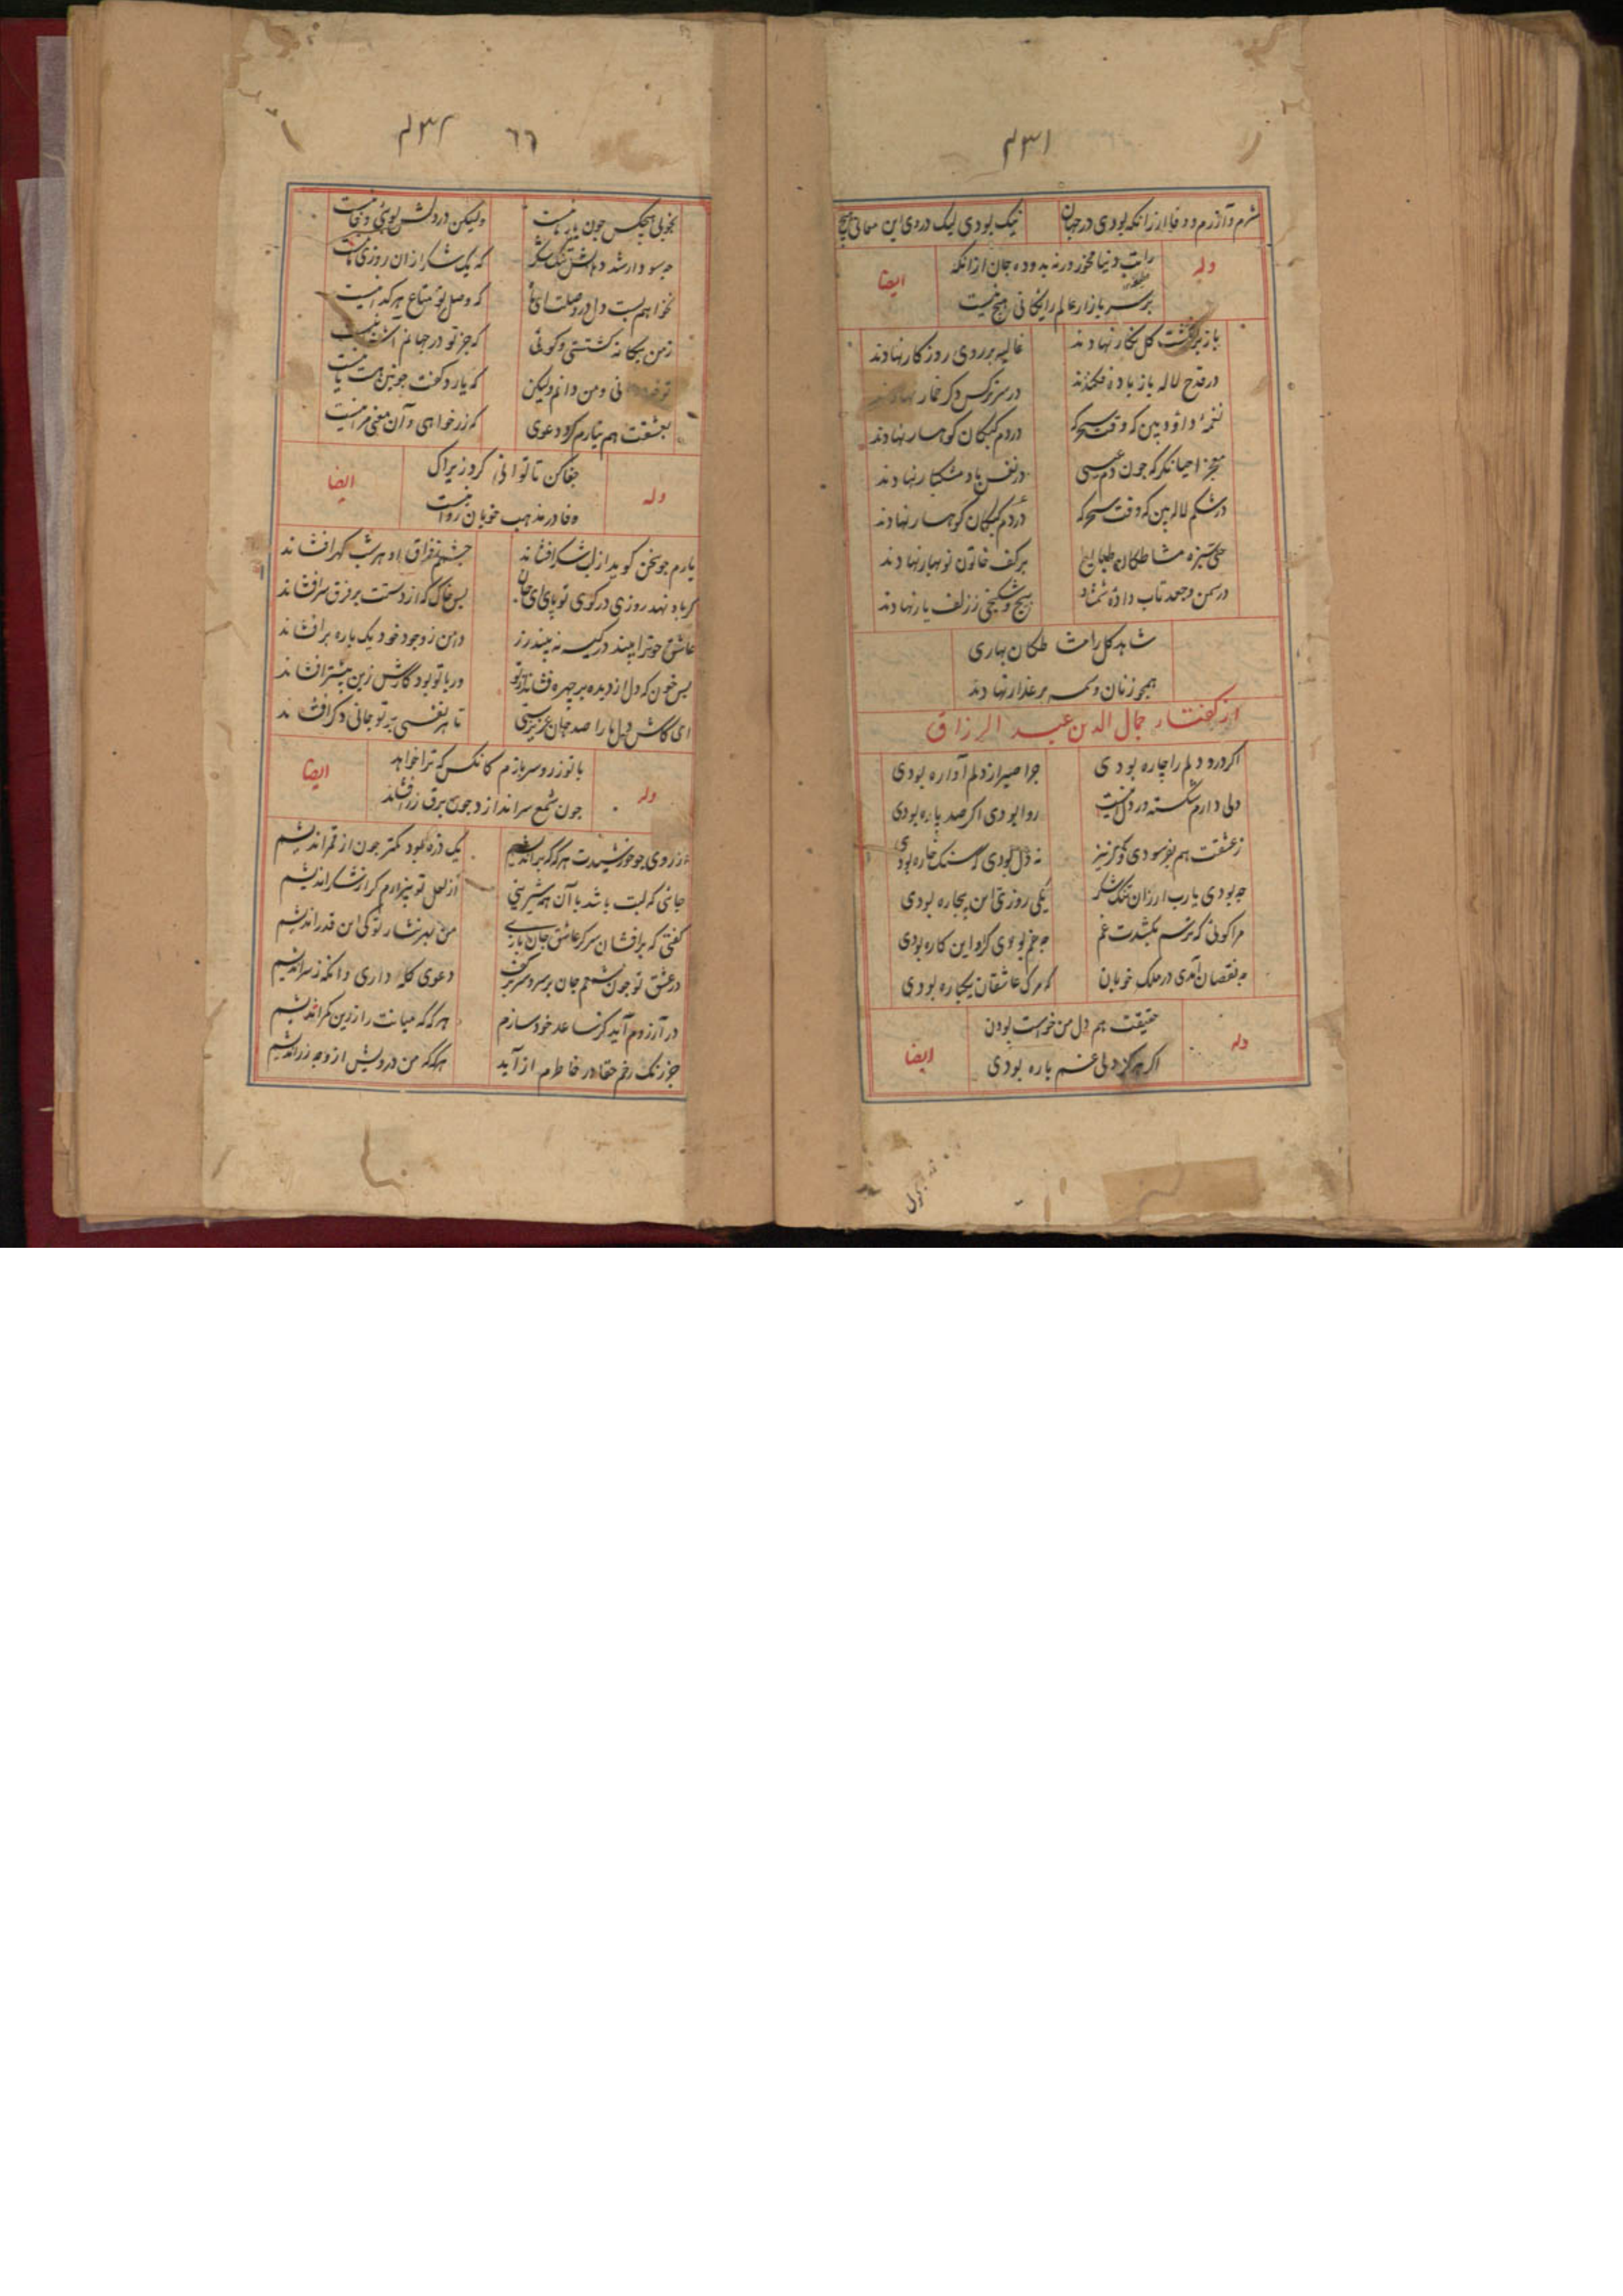 ۴۳۱
شرم و آزرم و وفا ارزانکه بودی در جهان نیک بودی لیک در وی این معانی هیچ
وله
ایضا
دنیا مخور ورنه بدو ده جان ازانکه
بر سر بازار عالم رایکانی هیچ نیست
باز کل نکار نهادند غالیه بر روی روزکار نهادند
در قدح لاله باز باده فکندند در سر نرکس دکر خمار نهادند
نغمه داود بین که وقت سحرکه در دم کبکان کوهسار نهادند
معجز احیا نکر که چون دم عیسی در نفس باد مشکبار نهادند
در شکم لاله بین که وقت سحرکه در دم کبکان کوهسار نهادند
سبزه مشاطکان طبایع بر کف خاتون نوبهار نهادند
در سمن و جعد تاب داده شمشاد پیچ و شکنجی ز زلف یار نهادند
شاهد کل را مشاطکان بهاری
همچو زنان وسمه بر عذار نهادند
از کفتار جمال الدین عبد الرزاق
اکر درد دلم را چاره بودی چرا صبر از دلم آواره بودی
دلی دارم شکسته در روا بودی اکر صد پاره بودی
ز عشقت هم بفرسودی و کر نیز نه دل بودی که سنک خاره بودی
چه بودی یارب ار زان تنک شکر یکی روزی این بیچاره بودی
مرا کوئی که ترسم بکشدت غم چه غم بودی کر او این کاره بودی
چه نقصان آمدی در ملک خوبان که مرک عاشقان یکباره بودی
وله
ایضا
حقیقت هم دل من خواست بودن
اکر هرکز دلی غم باره بودی
۴۳۲ ٦٦
بخوبی هیچکس چون یار ما نیست ولیکن در دلش بوی وفا نیست
چه سود ار شد دهانش تنک شکر که یک شکر ازان روزی ما نیست
نخواهم بست دل در وصلت که وصل تو متاع هر کدا نیست
ز من بیکانه کشتستی و کوئی که جز تو در جهانم آشنا نیست
نی و من دانم ولیکن که یارد کفت چونین هست یا نیست
بعشقت هم نیارم کرد دعوی که زر خواهی و آن معنی مرا نیست
وله
ایضا
جفا کن تا توانی کرد زیراک
وفا در مذهب خوبان روا نیست
یارم چو سخن کوید از لب شکر افشاند چشمم ز فراق او هر شب کهر افشاند
کر باد نهد روزی در کوی تو پای ای جان بس خاک که از دستت بر فرق سر افشاند
عاشق چو ترا بیند در کیسه نه بیند زر دامن ز وجود خود یک باره بر افشاند
بس خون که دل از دیده بر چهره فشاند از تو ور با تو بود کارش زین بیشتر افشاند
ای کاش دل ما را صد جان عزیزستی تا هر نفسی بر تو جانی دکر افشاند
وله
ایضا
با تو زر و سر بازم کانکس که ترا خواهد
چون شمع سر اندازد چون برق زر افشاند
از روی چو خورشیدت هرکه که بر اندیشم یک ذره بود کمتر چون از قمر اندیشم
جانی که لبت باشد با آن همه شیرینی از لعل تو بیزارم کر از شکر اندیشم
کفتی که بر افشان سر کر عاشق جان بازی من بهر نثار تو کی این قدر اندیشم
در عشق تو چون شمعم جان بر سر و سر بر کف دعوی کله داری وانکه ز سر اندیشم
در آرزوم آید کز ساعد خود سازم هرکه که میانت را زرین کمر اندیشم
جز رنک رخم حقا در خاطرم ار آید هرکه که من درویش از وجه زر اندیشم